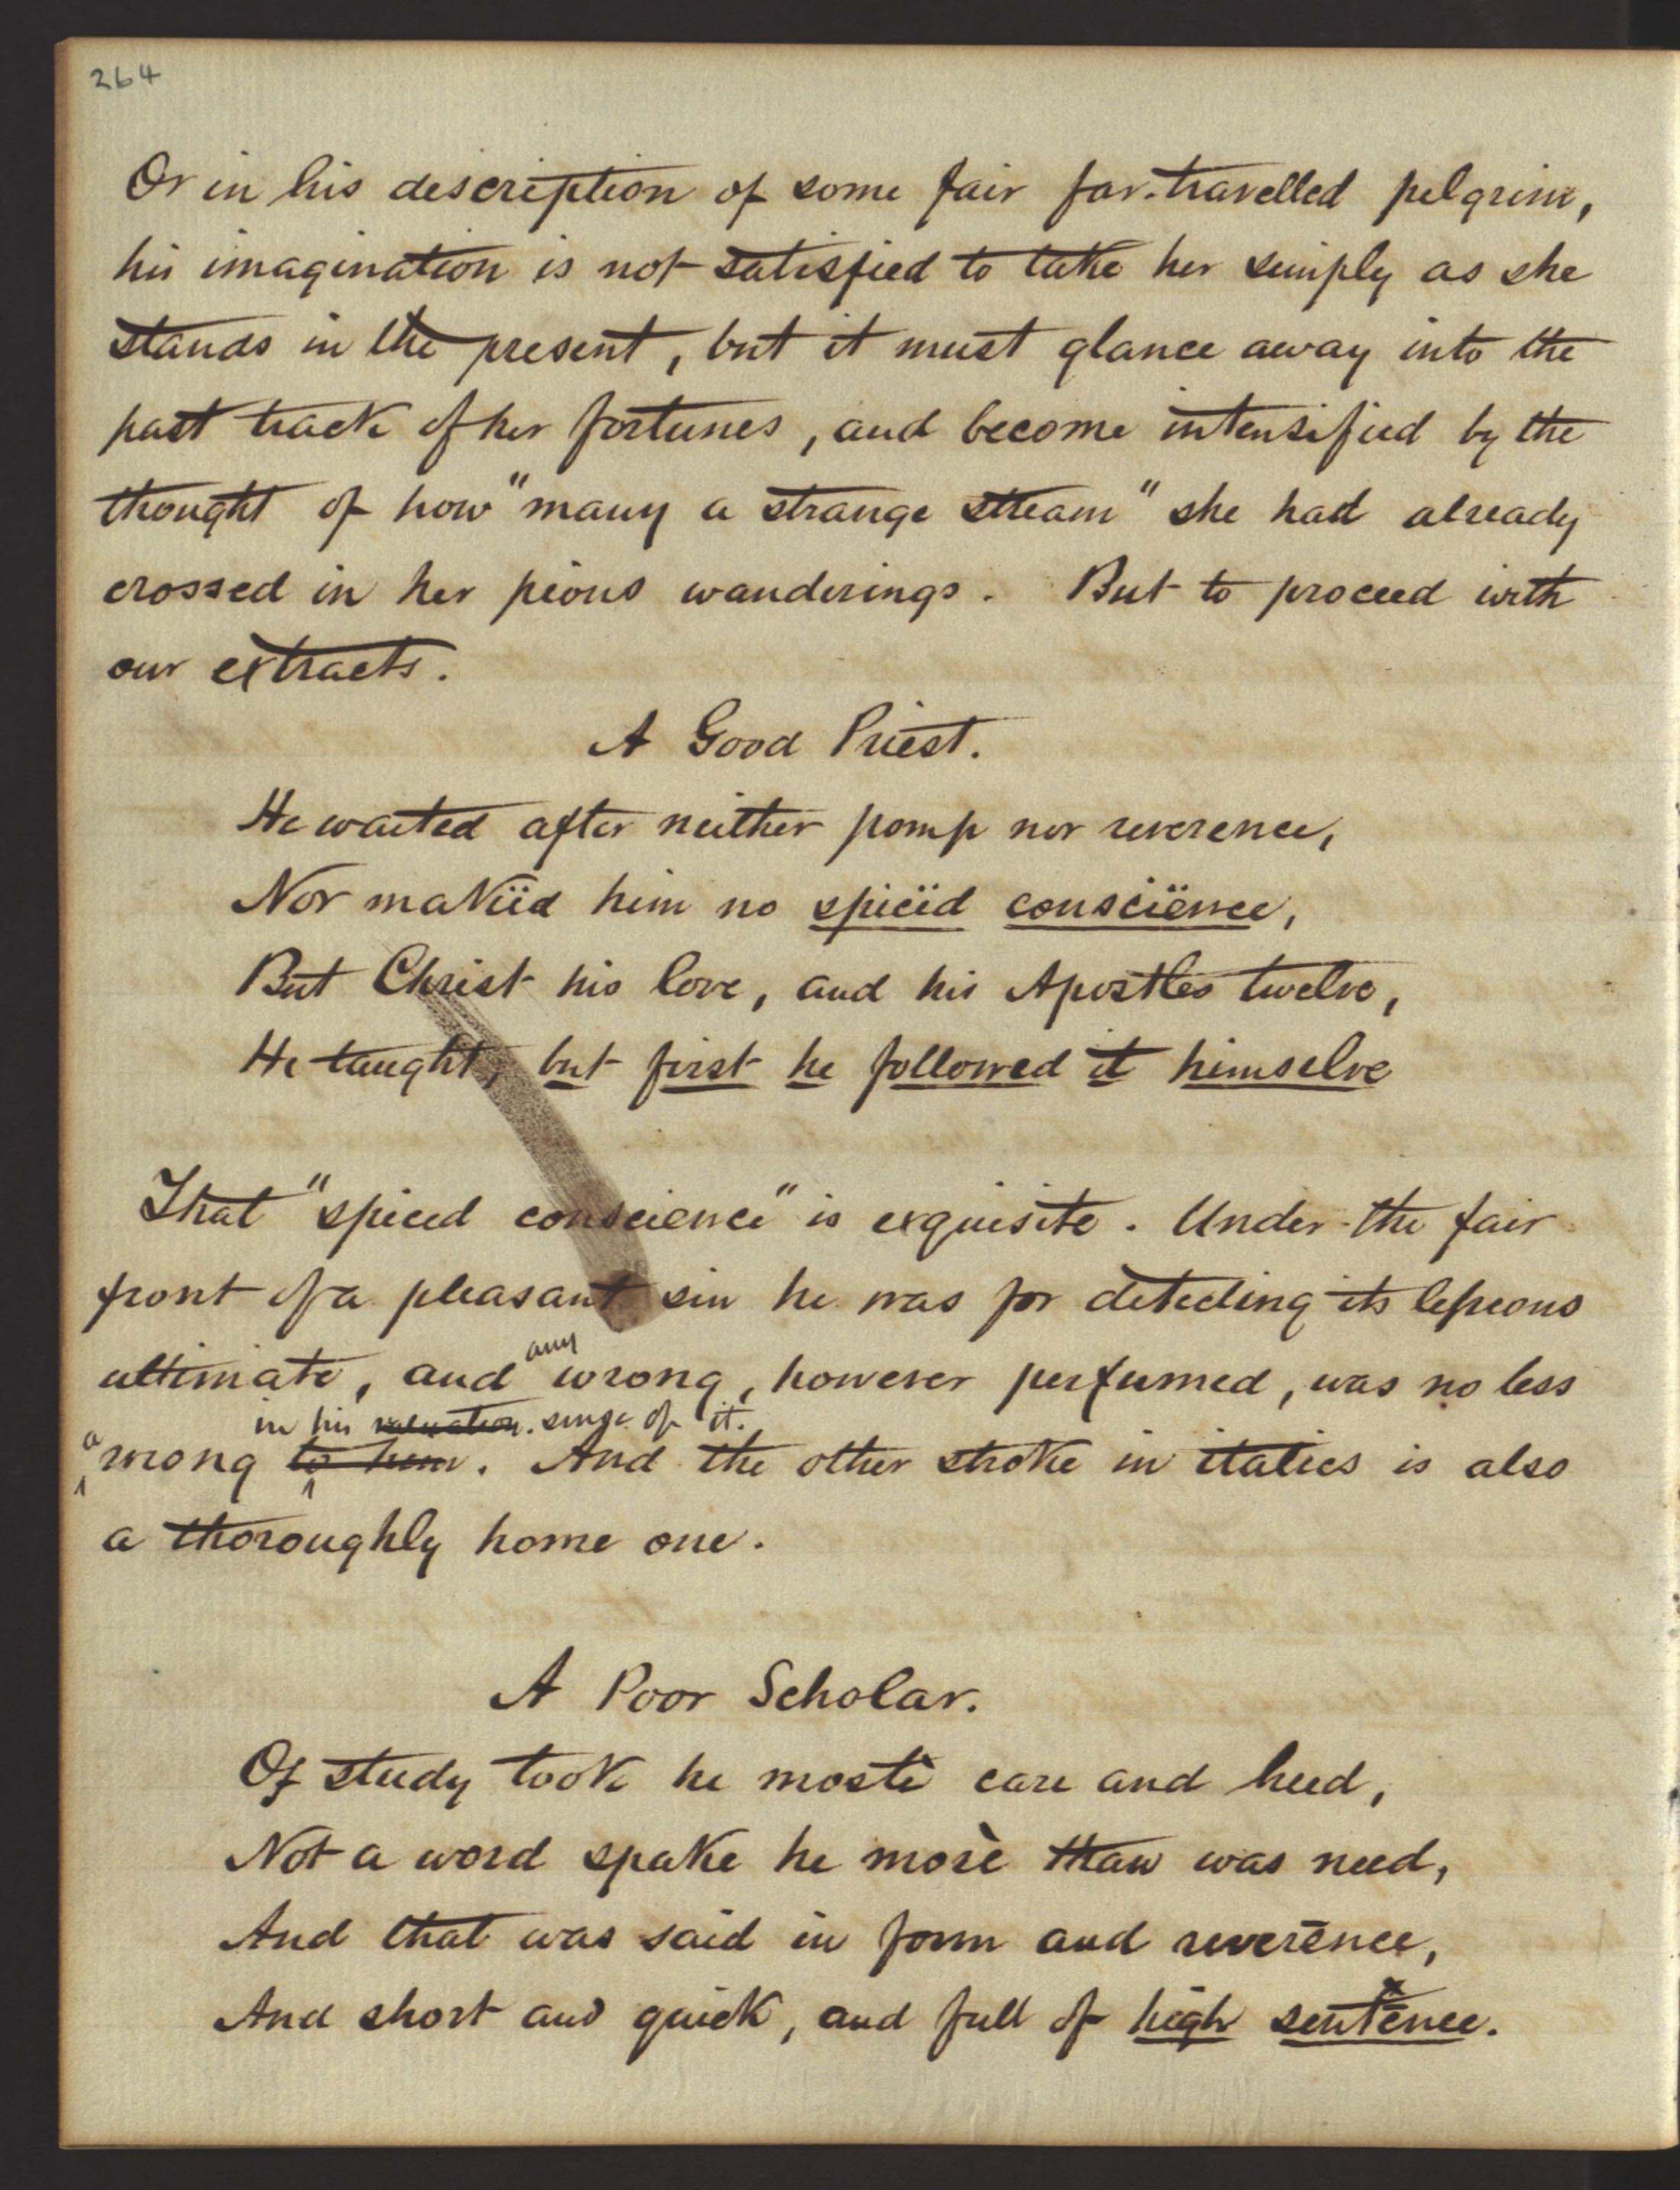 264
Or in his description of some fair far-travelled pilgrim,
his imagination is not satisfied to take her simply as she
stands in the present, but it must glance away into the
past track of her fortunes, and become intensified by the
thought of how "many a strange stream" she had already
crossed in her pious wanderings. But to proceed with
our extracts.
A Good Priest.
He waited after neither pomp nor reverence,
Nor makiïd him no spiciïd consciënce,
But Christ his love, and his Apostles twelve,
He taught, but first he followed it himselve
That "spiced conscience" is exquisite. Under the fair
front of a pleasant sin he was for detecting its leprous
ultimate, and any wrong, however perfumed, was no less
in his valuation. sense of it.
a wrong to him. And the other stroke in italics is also
a thoroughly home one.
A Poor Scholar.
Of study took he mostè care and heed,
Not a word spake he morè than was need,
And that was said in form and reverēnce,
And short and quick, and full of high sentēnce.